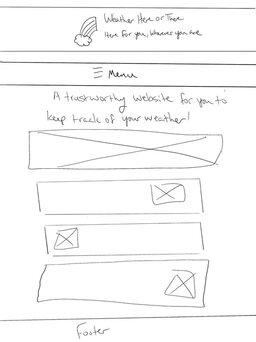 Weather Here or There
Here for you, wherever you are
Menu
A trustworthy website for you to
keep track of your weather!
Footer